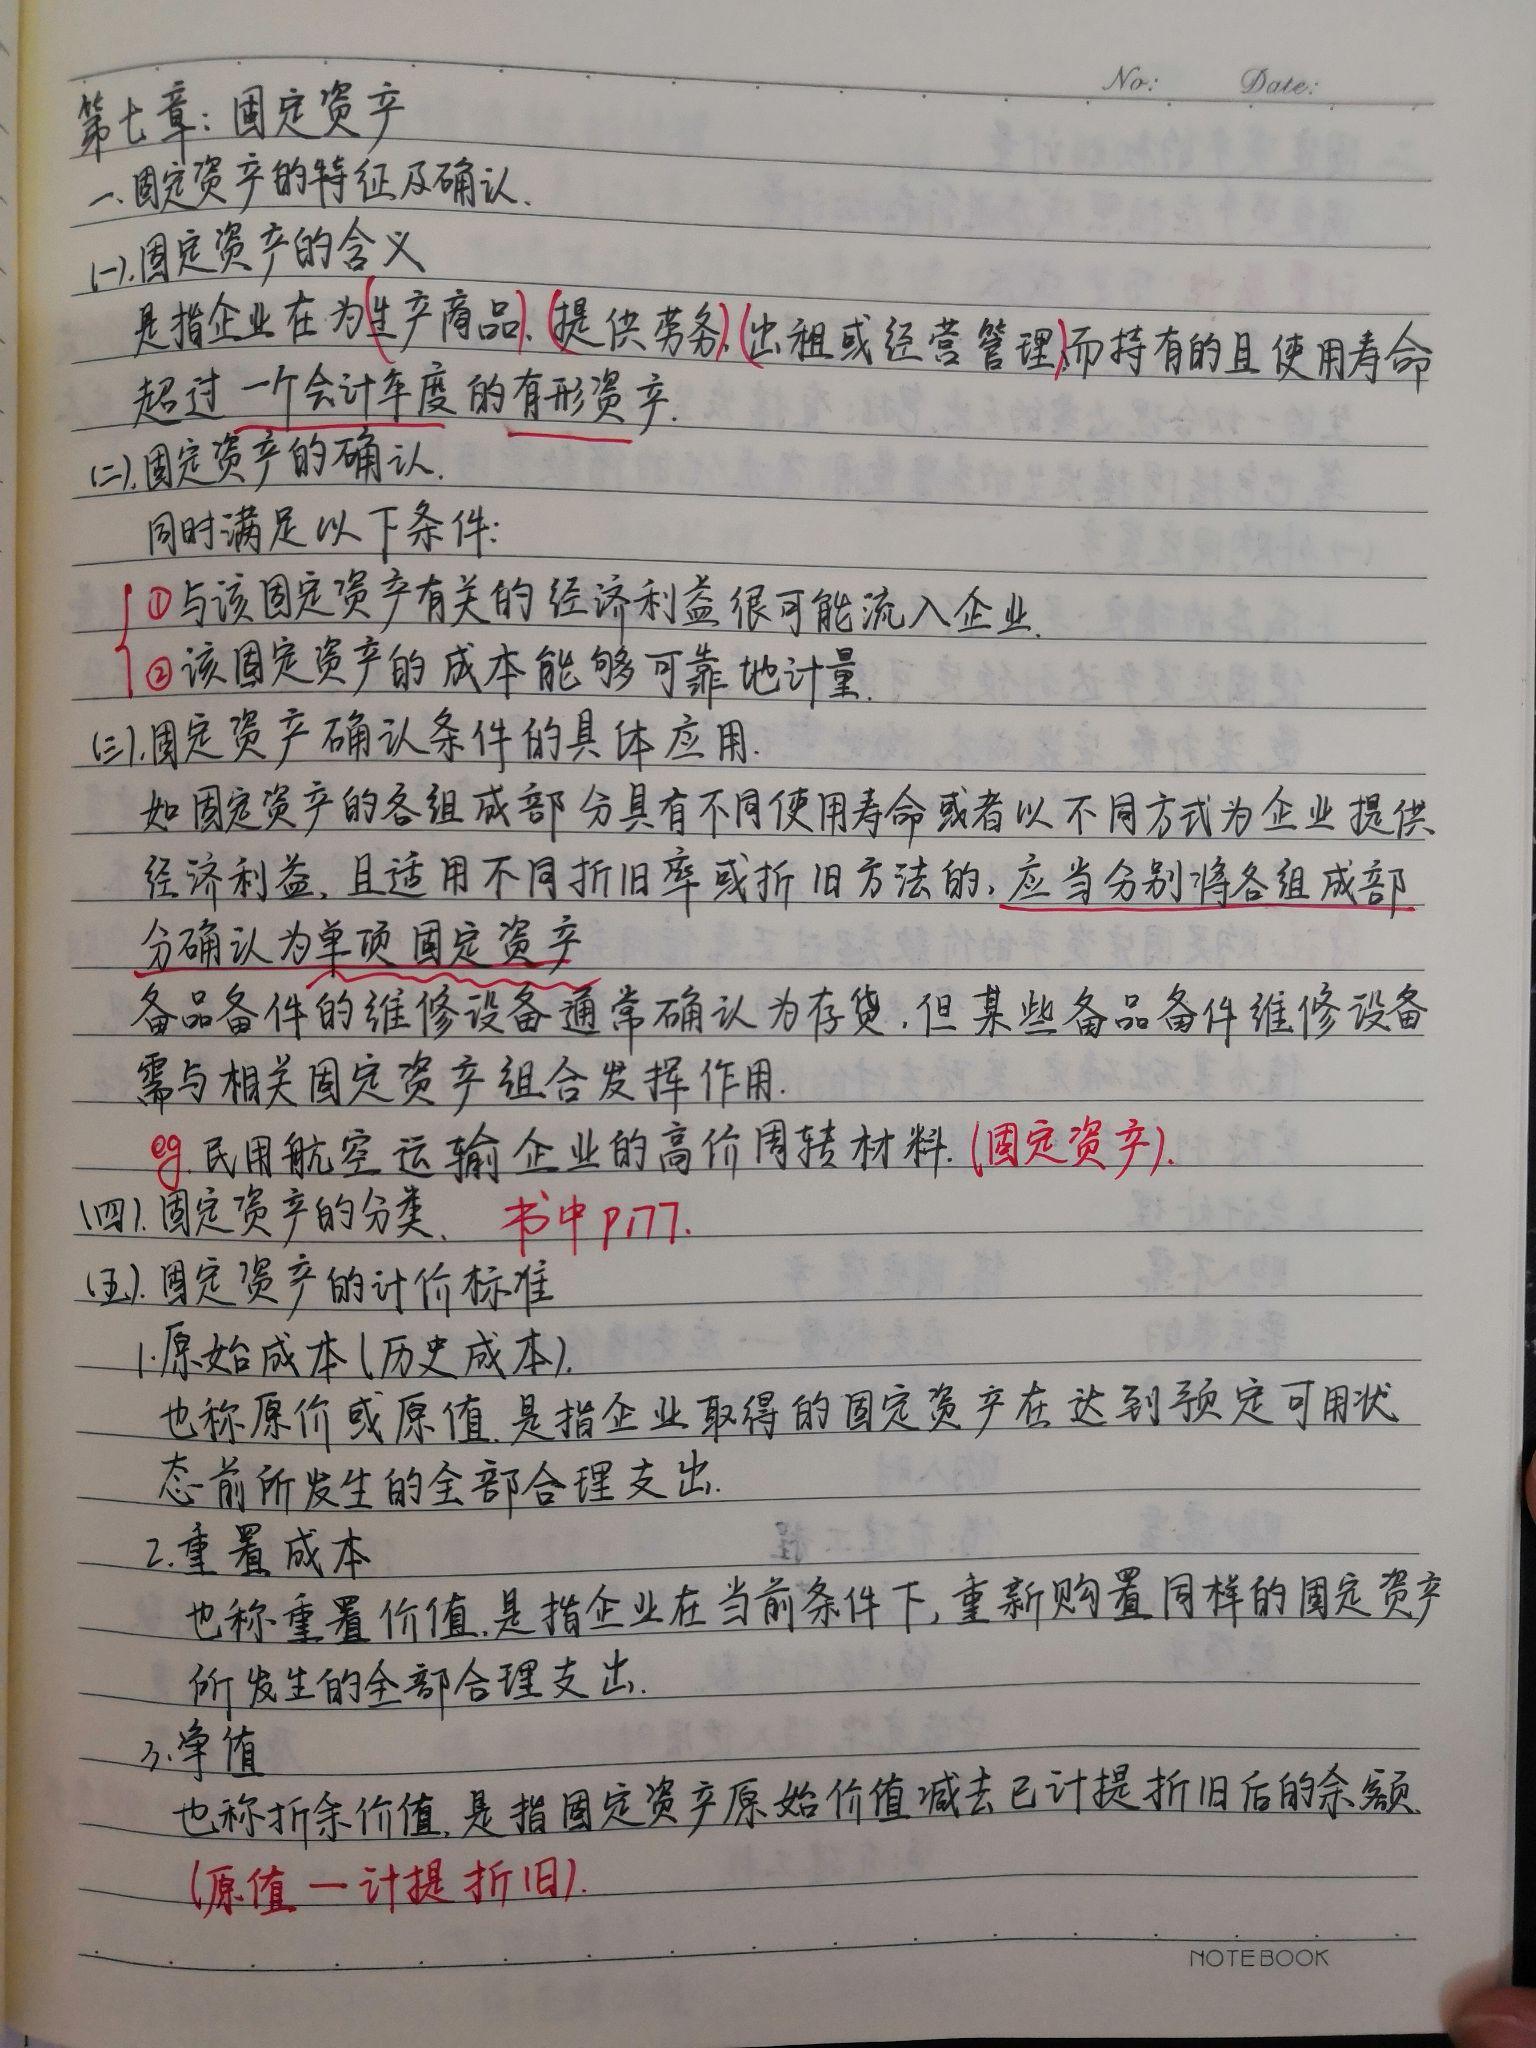 No: Date:
第七章：固定资产
一.固定资产的特征及确认.
(一).固定资产的含义
是指企业在为(生产商品).(提供劳务).(出租或经营管理)而持有的且使用寿命
超过一个会计年度的有形资产.
(二).固定资产的确认.
同时满足以下条件:
①与该固定资产有关的经济利益很可能流入企业.
②该固定资产的成本能够可靠地计量.
(三).固定资产确认条件的具体应用.
如固定资产的各组成部分具有不同使用寿命或者以不同方式为企业提供
经济利益,且适用不同折旧率或折旧方法的,应当分别将各组成部
分确认为单项固定资产
备品备件的维修设备通常确认为存货,但某些备品备件维修设备
需与相关固定资产组合发挥作用.
eg.民用航空运输企业的高价周转材料.(固定资产).
(四).固定资产的分类. 书中P177.
(五).固定资产的计价标准
1.原始成本(历史成本).
也称原价或原值.是指企业取得的固定资产在达到预定可用状
态前所发生的全部合理支出.
2.重置成本
也称重置价值.是指企业在当前条件下,重新购置同样的固定资产
所发生的全部合理支出.
3.净值
也称折余价值.是指固定资产原始价值减去已计提折旧后的余额.
(原值一计提折旧).
NOTEBOOK